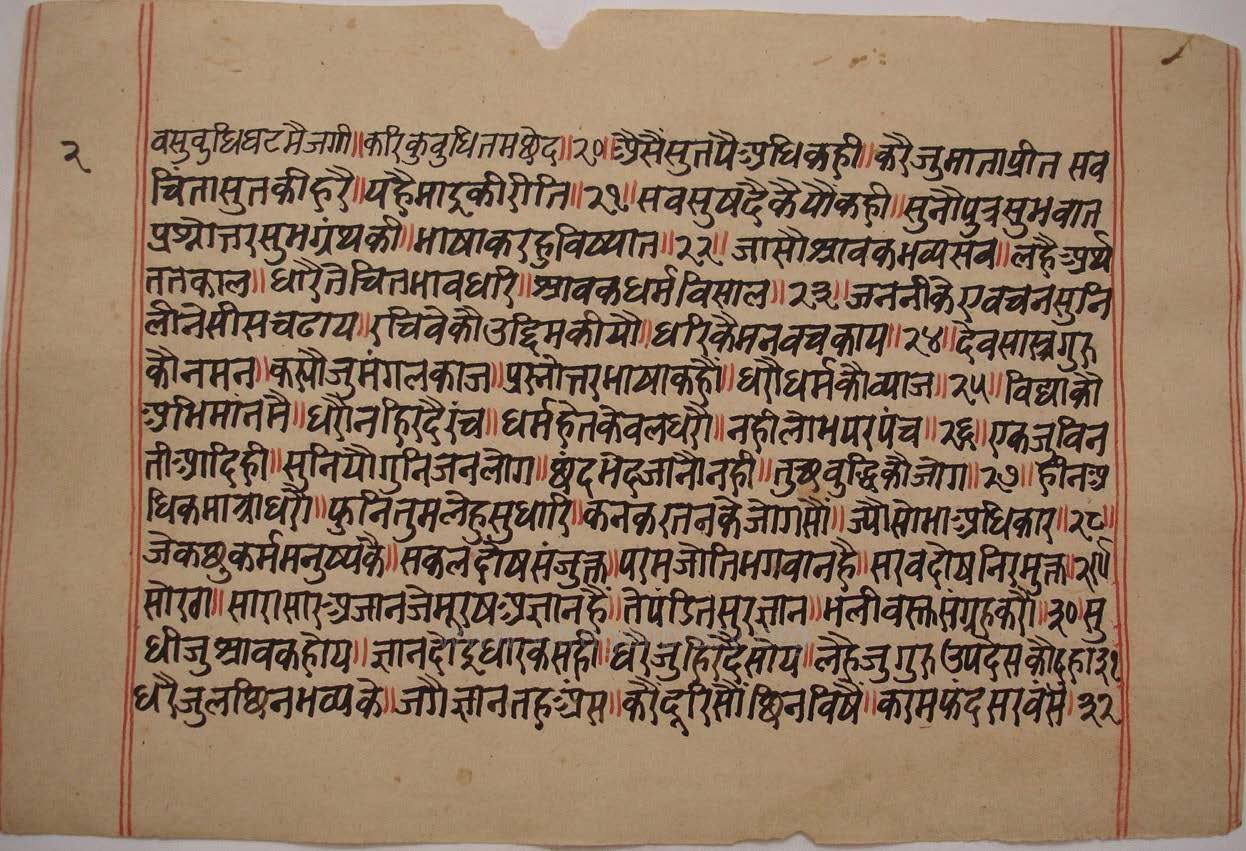 २
वसुबुधिघटमैजगी॥करिकुबुधितमछेद॥२०॥अैसैंसुतपैअधिकही॥करैजुमाताप्रीत सब
चिंतासुतकीहरै॥यहैमाइकीरीति॥२१॥सबसुषदैकैयौंकही॥सुनौपुत्रसुभबात
प्रश्नोत्तरसुभग्रंथकी॥भाषाकरहुविष्यात॥२२॥जासौश्रावकभव्यसब॥लहैअर्थ
ततकाल॥धारैतेचितभावधरि॥श्रावकधर्मविसाल॥२३॥जननीकेएवचनसुनि
लीनेसीसचढाय॥रचिवेकौउद्दिमकीयौ॥धरिकैमनवचकाय॥२४॥देवसास्त्रगुरु
कौनमन॥कस्यौजुमंगलकाज॥प्रस्नोत्तरभाषाकहौं॥धरौधर्मकौव्याज॥२५॥विद्याकौ
अभिमांनमै॥धरौनहिरदैरंच॥धर्महेतकेवलधरौ॥नहीलोभपरपंच॥२६॥एकजुविन
तीआदिही॥सुनियौगुनिजनलोग॥छंदभेदजानौनही॥तुछबुद्धिकौजोग॥२७॥हीनअ
धिकमात्राधरौ॥फुनितुमलेहुसुधारि॥कनकरतनकेजोगसौ॥ज्यौसोभाअधिकार॥२८॥
जेकछुकर्ममनुष्यकै॥सकलदोषसंजुक्त॥परमजोतिभगवानहै॥सरवदोषनिरमुक्त॥२९॥
सोरठा॥सारासारअजानजेमूरषअज्ञानहैं॥तेपंडितसुरज्ञान॥भलीवस्तसंग्रहकरौ॥३०सु
धीजुश्रावकहोय॥ज्ञानदौइधारकसही॥धरैजुहिरदैसोय॥लहेजुगुरुउपदेसकौदहा३१
धरैजुलछिनभव्यके॥जगैज्ञानतहअंस॥करैदूरिसोछिनविषै॥करमफंदसरवंस॥३२